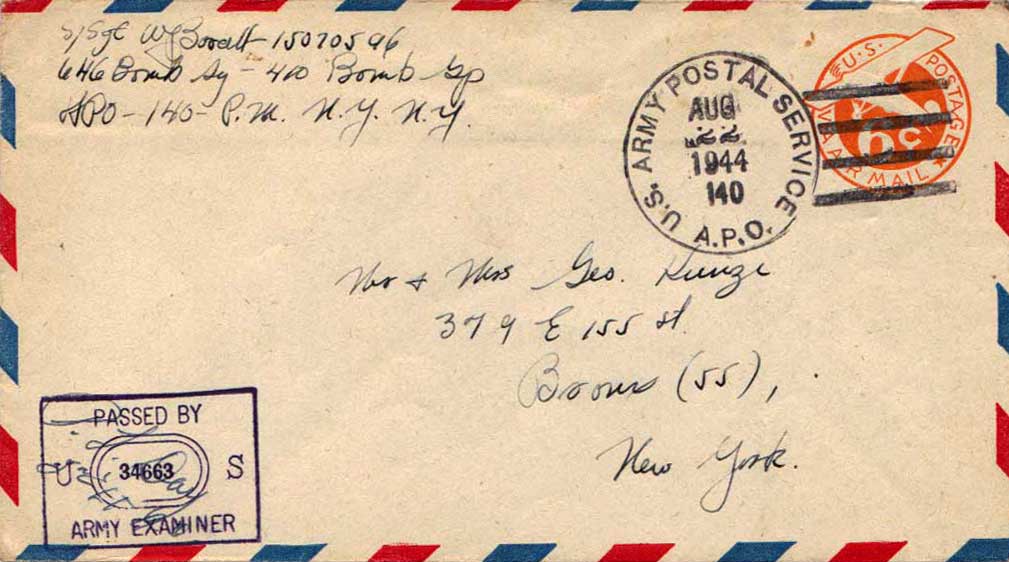 S/Sgt W J 15070596
646 Bomb Sq - 410 Bomb Gp
APO - 140 - P.M. N.Y. N.Y.
U.S. ARMY POSTAL SERVICE
AUG
22
1944
140
A.P.O.
U.S. POSTAGE
6¢
VIA AIR MAIL
Mr & Mrs Geo. Kunze
379 E 155 st.
Bronx (55),
New York.
PASSED BY
U 34663 S
ARMY EXAMINER